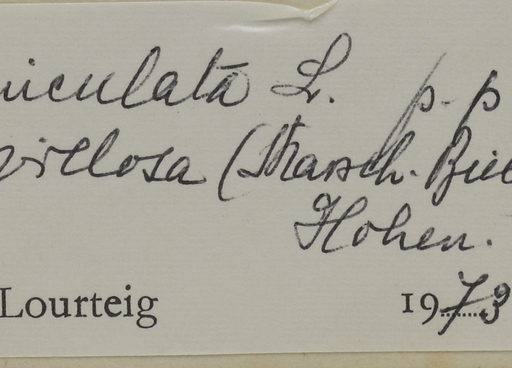 niculata L. p. p
villosa (Marsch. Bie
Hohen.
Lourteig 1973